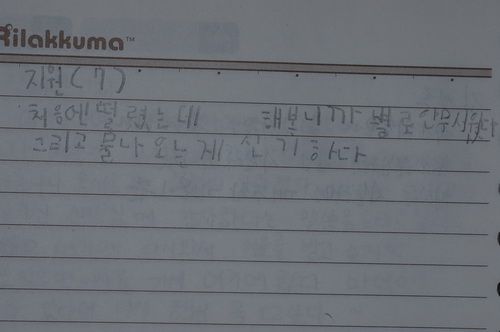 Rilakkuma™
지원(7)
처음에 떨렸는데 해보니까 별로 안무서웠다
그리고 물나오는게 신기하다